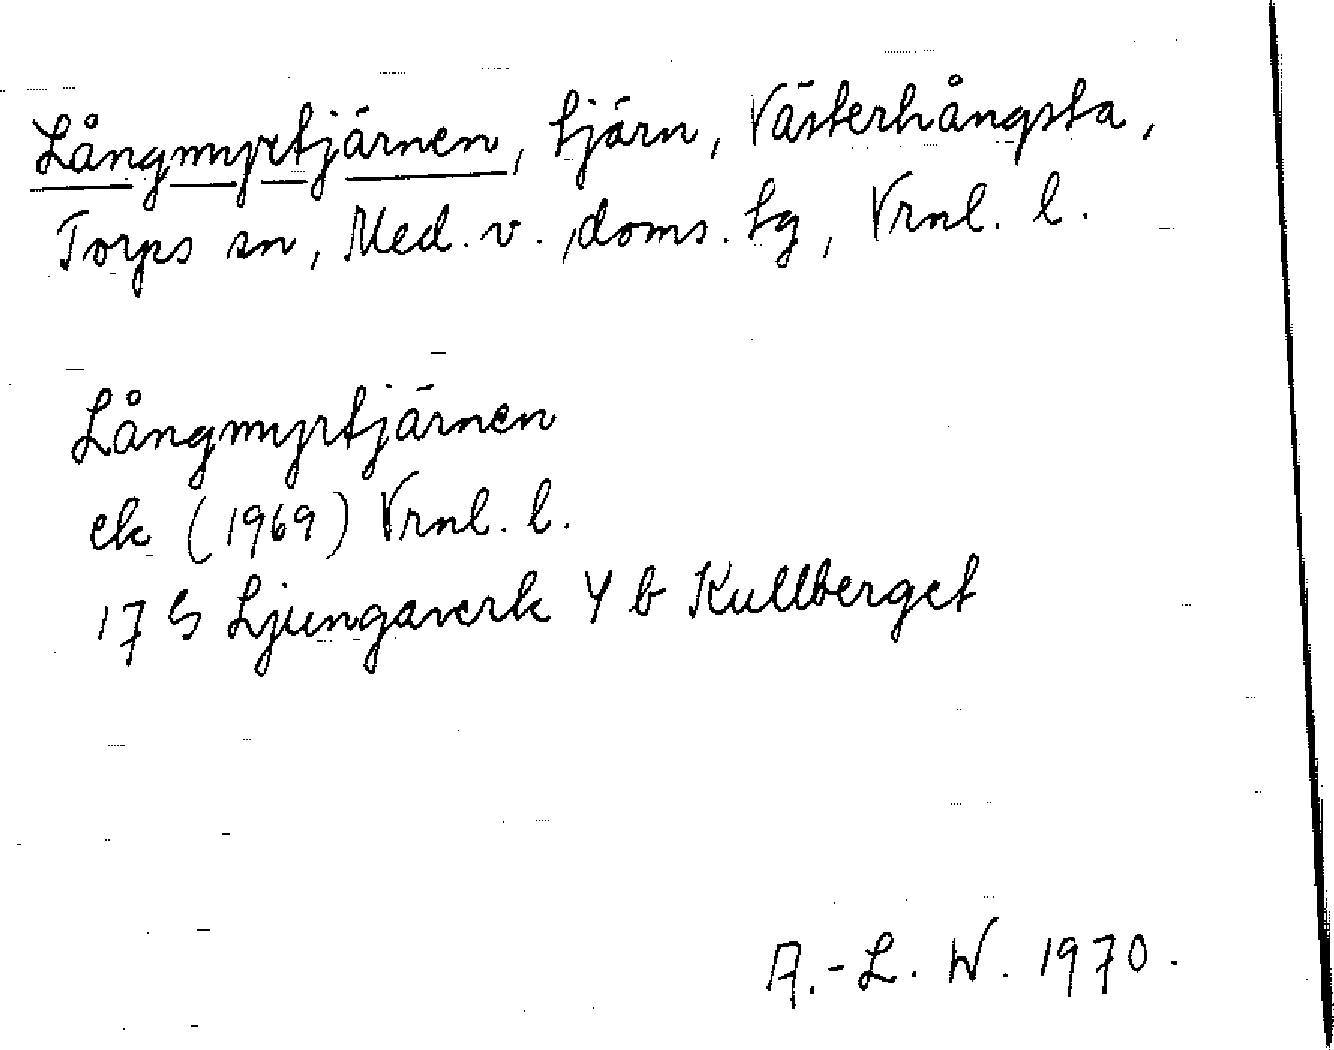 Långmyrtjärnen, tjärn, Västerhångsta,
Torps sn, Med. v. doms. tg, Vrnl. l.
Långmyrtjärnen
ek (1969) Vrnl. l.
17 G Ljungaverk Y b Kullberget
A.-L. W. 1970.